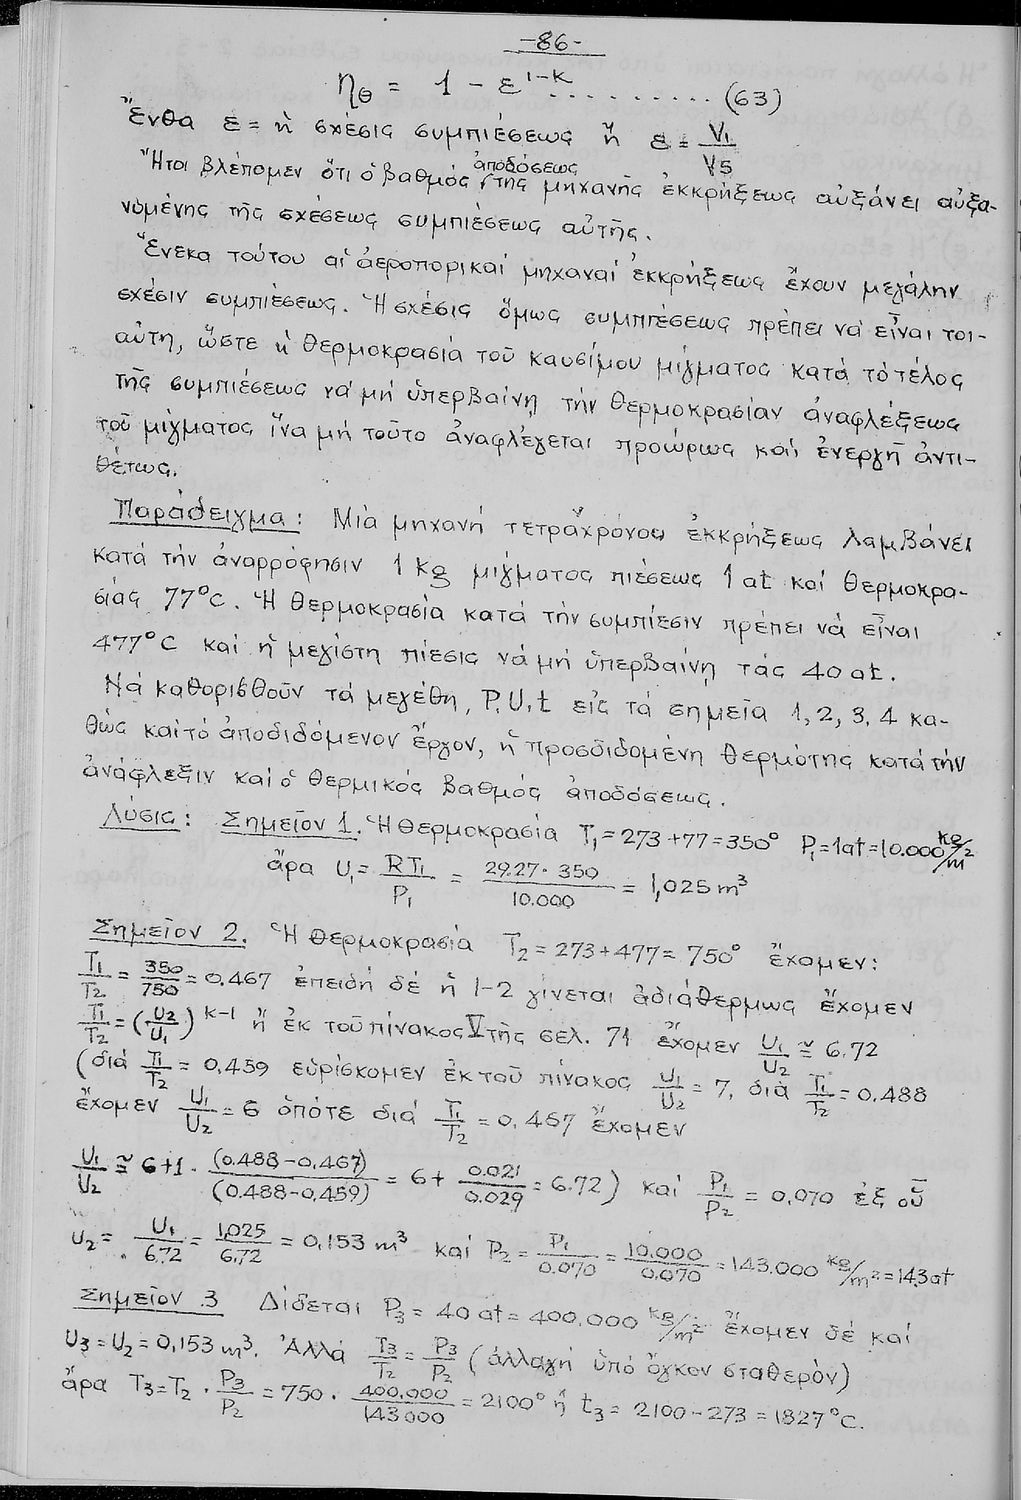 -86-
ηθ = 1 - ε^1-κ .......... (63)
Ἔνθα ε = ἡ σχέσις συμπιέσεως ἤ ε = V1/V5
Ἤτοι βλέπομεν ὅτι ὁ βαθμός ἀποδόσεως τῆς μηχανῆς ἐκκρήξεως αὐξάνει αὐξα-
νομένης τῆς σχέσεως συμπιέσεως αὐτῆς.
Ἕνεκα τούτου αἱ ἀεροπορικαί μηχαναί ἐκκρήξεως ἔχουν μεγάλην
σχέσιν συμπιέσεως. Ἡ σχέσις ὅμως συμπιέσεως πρέπει νά εἶναι τοι-
αύτη, ὥστε ἡ θερμοκρασία τοῦ καυσίμου μίγματος κατά τό τέλος
τῆς συμπιέσεως νά μή ὑπερβαίνῃ τήν θερμοκρασίαν ἀναφλέξεως
τοῦ μίγματος ἵνα μή τοῦτο ἀναφλέγεται προώρως καί ἐνεργῆ ἀντι-
θέτως.
Παράδειγμα: Μία μηχανή τετράχρονος ἐκκρήξεως λαμβάνει
κατά τήν ἀναρρόφησιν 1 kg μίγματος πιέσεως 1 at καί θερμοκρα-
σίας 77°C. Ἡ θερμοκρασία κατά τήν συμπίεσιν πρέπει νά εἶναι
477°C καί ἡ μεγίστη πίεσις νά μή ὑπερβαίνῃ τάς 40 at.
Νά καθορισθοῦν τά μεγέθη, P, U, t εἰς τά σημεῖα 1, 2, 3, 4 κα-
θώς καί τό ἀποδιδόμενον ἔργον, ἡ προσδιδομένη θερμότης κατά τήν
ἀνάφλεξιν καί ὁ θερμικός βαθμός ἀποδόσεως.
Λύσις: Σημεῖον 1. Ἡ θερμοκρασία T1 = 273 + 77 = 350° P1 = 1at = 10.000 kg/m2
ἄρα U1 = RT1/P1 = 29.27 · 350/10.000 = 1,025 m³
Σημεῖον 2. Ἡ θερμοκρασία T2 = 273 + 477 = 750° ἔχομεν:
T1/T2 = 350/750 = 0.467 ἐπειδή δέ ἡ 1-2 γίνεται ἀδιάθερμως ἔχομεν
T1/T2 = (U2/U1)^κ-1 ἤ ἐκ τοῦ πίνακος V τῆς σελ. 71 ἔχομεν U1/U2 ≅ 6.72
(διά T1/T2 = 0,459 εὑρίσκομεν ἐκ τοῦ πίνακος U1/U2 = 7, διά T1/T2 = 0.488
ἔχομεν U1/U2 = 6 ὁπότε διά T1/T2 = 0,467 ἔχομεν
U1/U2 ≅ 6+1 · (0.488-0,467)/(0.488-0,459) = 6 + 0.021/0.029 = 6.72) καί P1/P2 = 0,070 ἐξ οὗ
U2 = U1/6.72 = 1,025/6,72 = 0,153 m³ καί P2 = P1/0.070 = 10.000/0.070 = 143.000 kg/m2 = 14,3 at
Σημεῖον 3 Δίδεται P3 = 40 at = 400.000 kg/m2 ἔχομεν δέ καί
U3 = U2 = 0,153 m³. Ἀλλά T3/T2 = P3/P2 (ἀλλαγή ὑπό ὄγκον σταθερόν)
ἄρα T3 = T2 · P3/P2 = 750 · 400.000/143000 = 2100° ἤ t3 = 2100 - 273 = 1827°C.